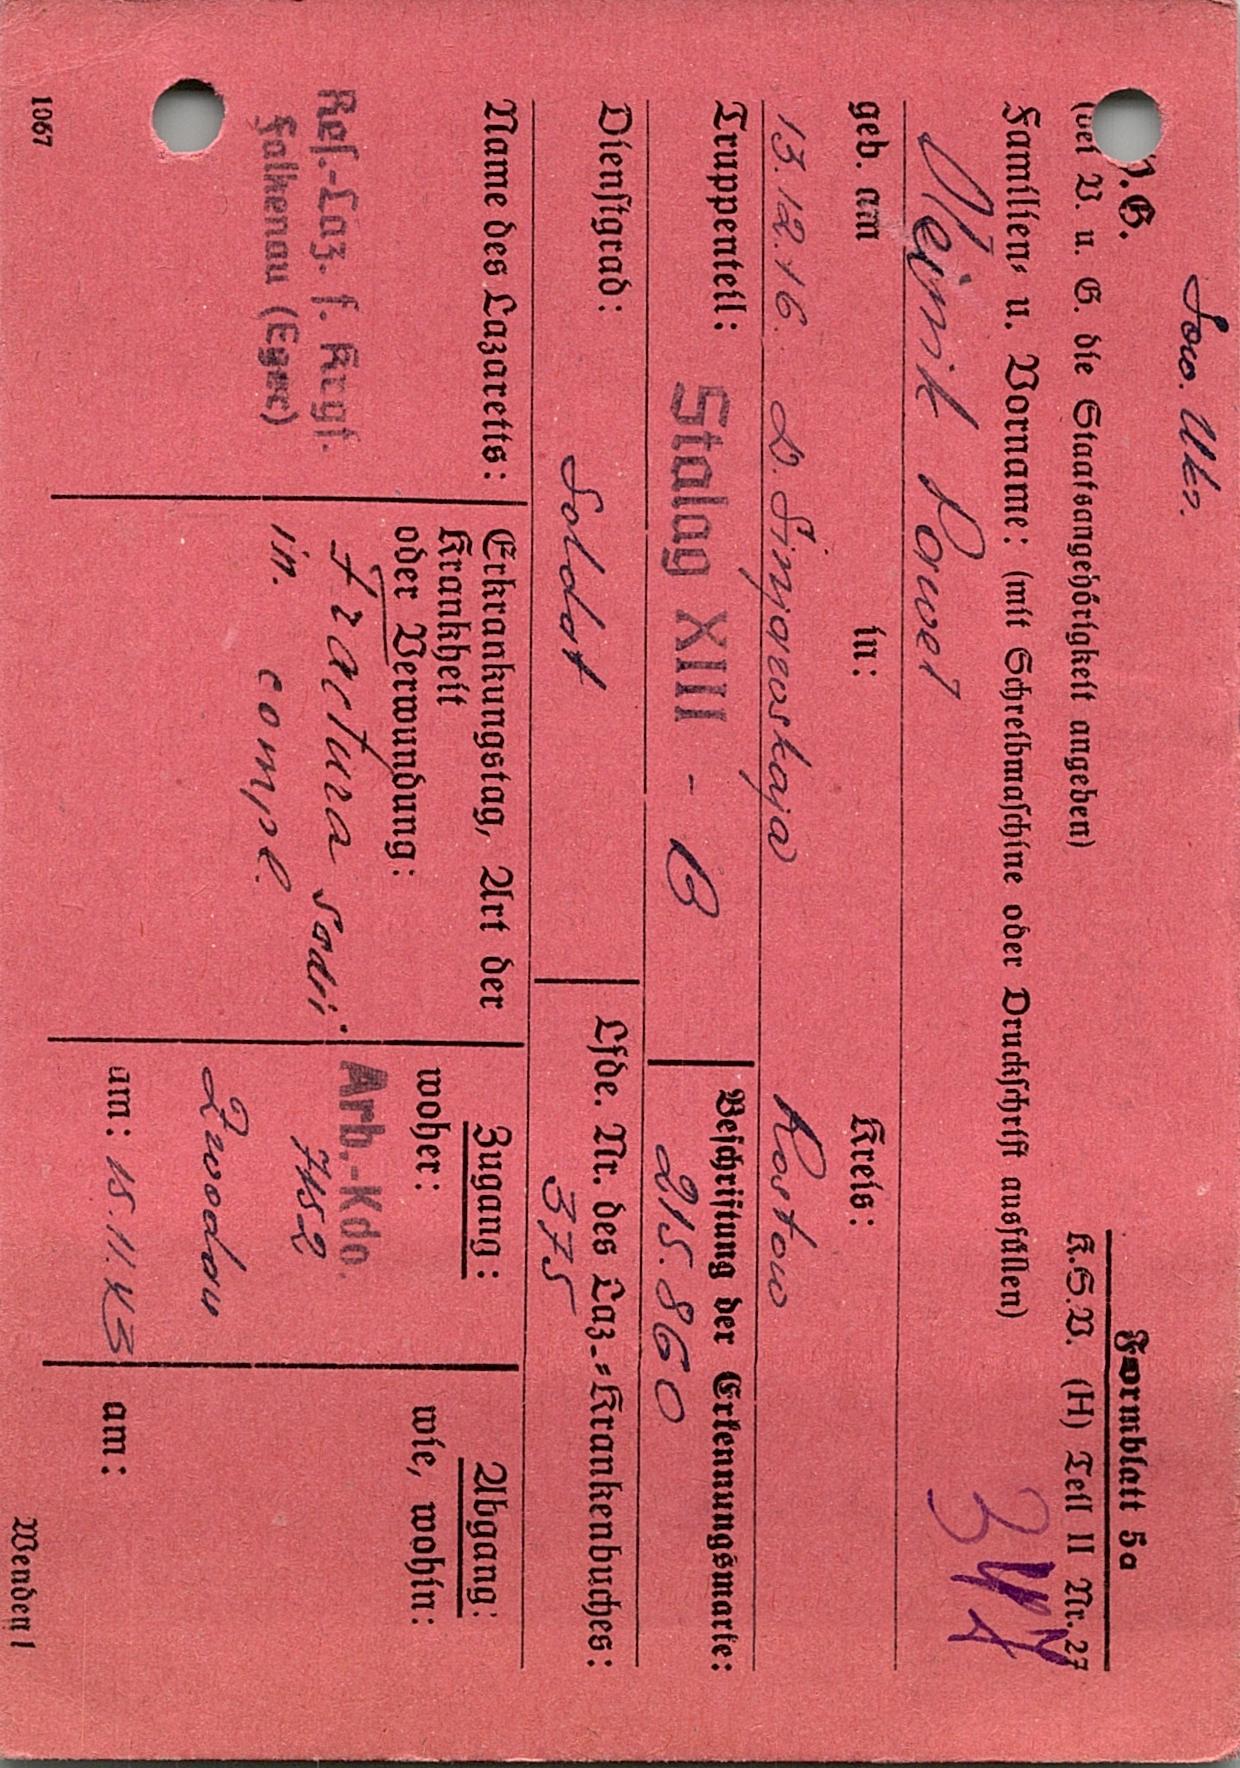 Sow. Ukr.
Formblatt 5a
K.S.V. (H) Teil II Nr. 27
.G.
(bei V. u. G. die Staatsangehörigkeit angeben)
Familien- u. Vorname: (mit Schreibmaschine oder Druckschrift ausfüllen)
Olejnik Pawel
geb. am in: Kreis:
13.12.16. D. Simjarwoskaja Rostow
Truppenteil: Beschriftung der Erkennungsmarke:
Stalag XIII - B 215.860
Dienstgrad: Lfde. Nr. des Laz.-Krankenbuches:
Soldat 375
Name des Lazaretts:
Res.-Laz. f. Krgf.
Falkenau (Eger)
Erkrankungstag, Art der
Krankheit
oder Verwundung:
Fractura radii
in. compl.
Zugang:
woher:
Arb.-Kdo.
7152
Zwodau
am: 15.11.43
Abgang:
wie, wohin:
am:
1067
Wenden!